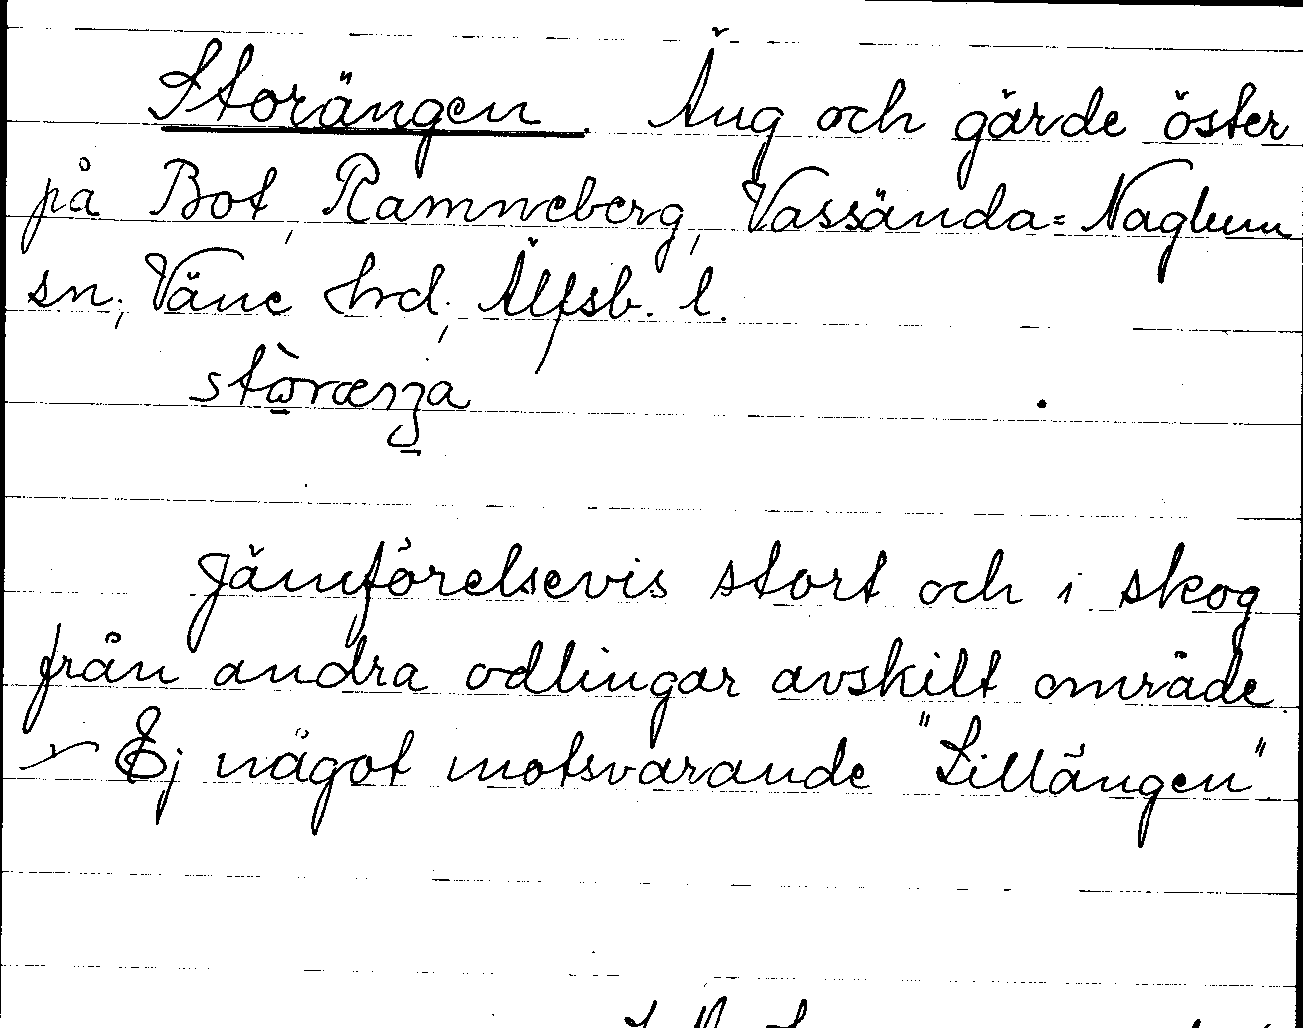 Storängen. Äng och gärde öster
på Bot, Ramneberg, Vassända=Naglum
sn, Väne hrd, Älfsb. l.
Jämförelsevis stort och i skog
från andra odlingar avskilt område.
– Ej något motsvarande "Lillängen".